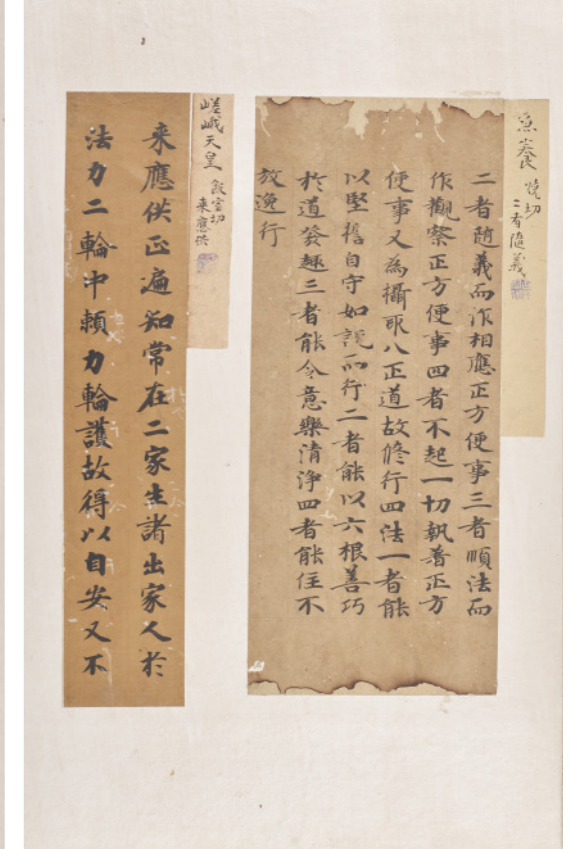 魚養 焼切
二者随義
二者随義而作相應正方便事三者順法而
作觀察正方便事四者不起一切執著正方
便事又為攝取八正道故修行四法一者能
以堅揩自守如說而行二者能以六根善巧
於道發趣三者能令意樂清淨四者能住不
放逸行
嵯峨天皇 飯室切
来應供
来應供正遍知常在二家生諸出家人於
法力二輪中頼力輪護故得以自安又不